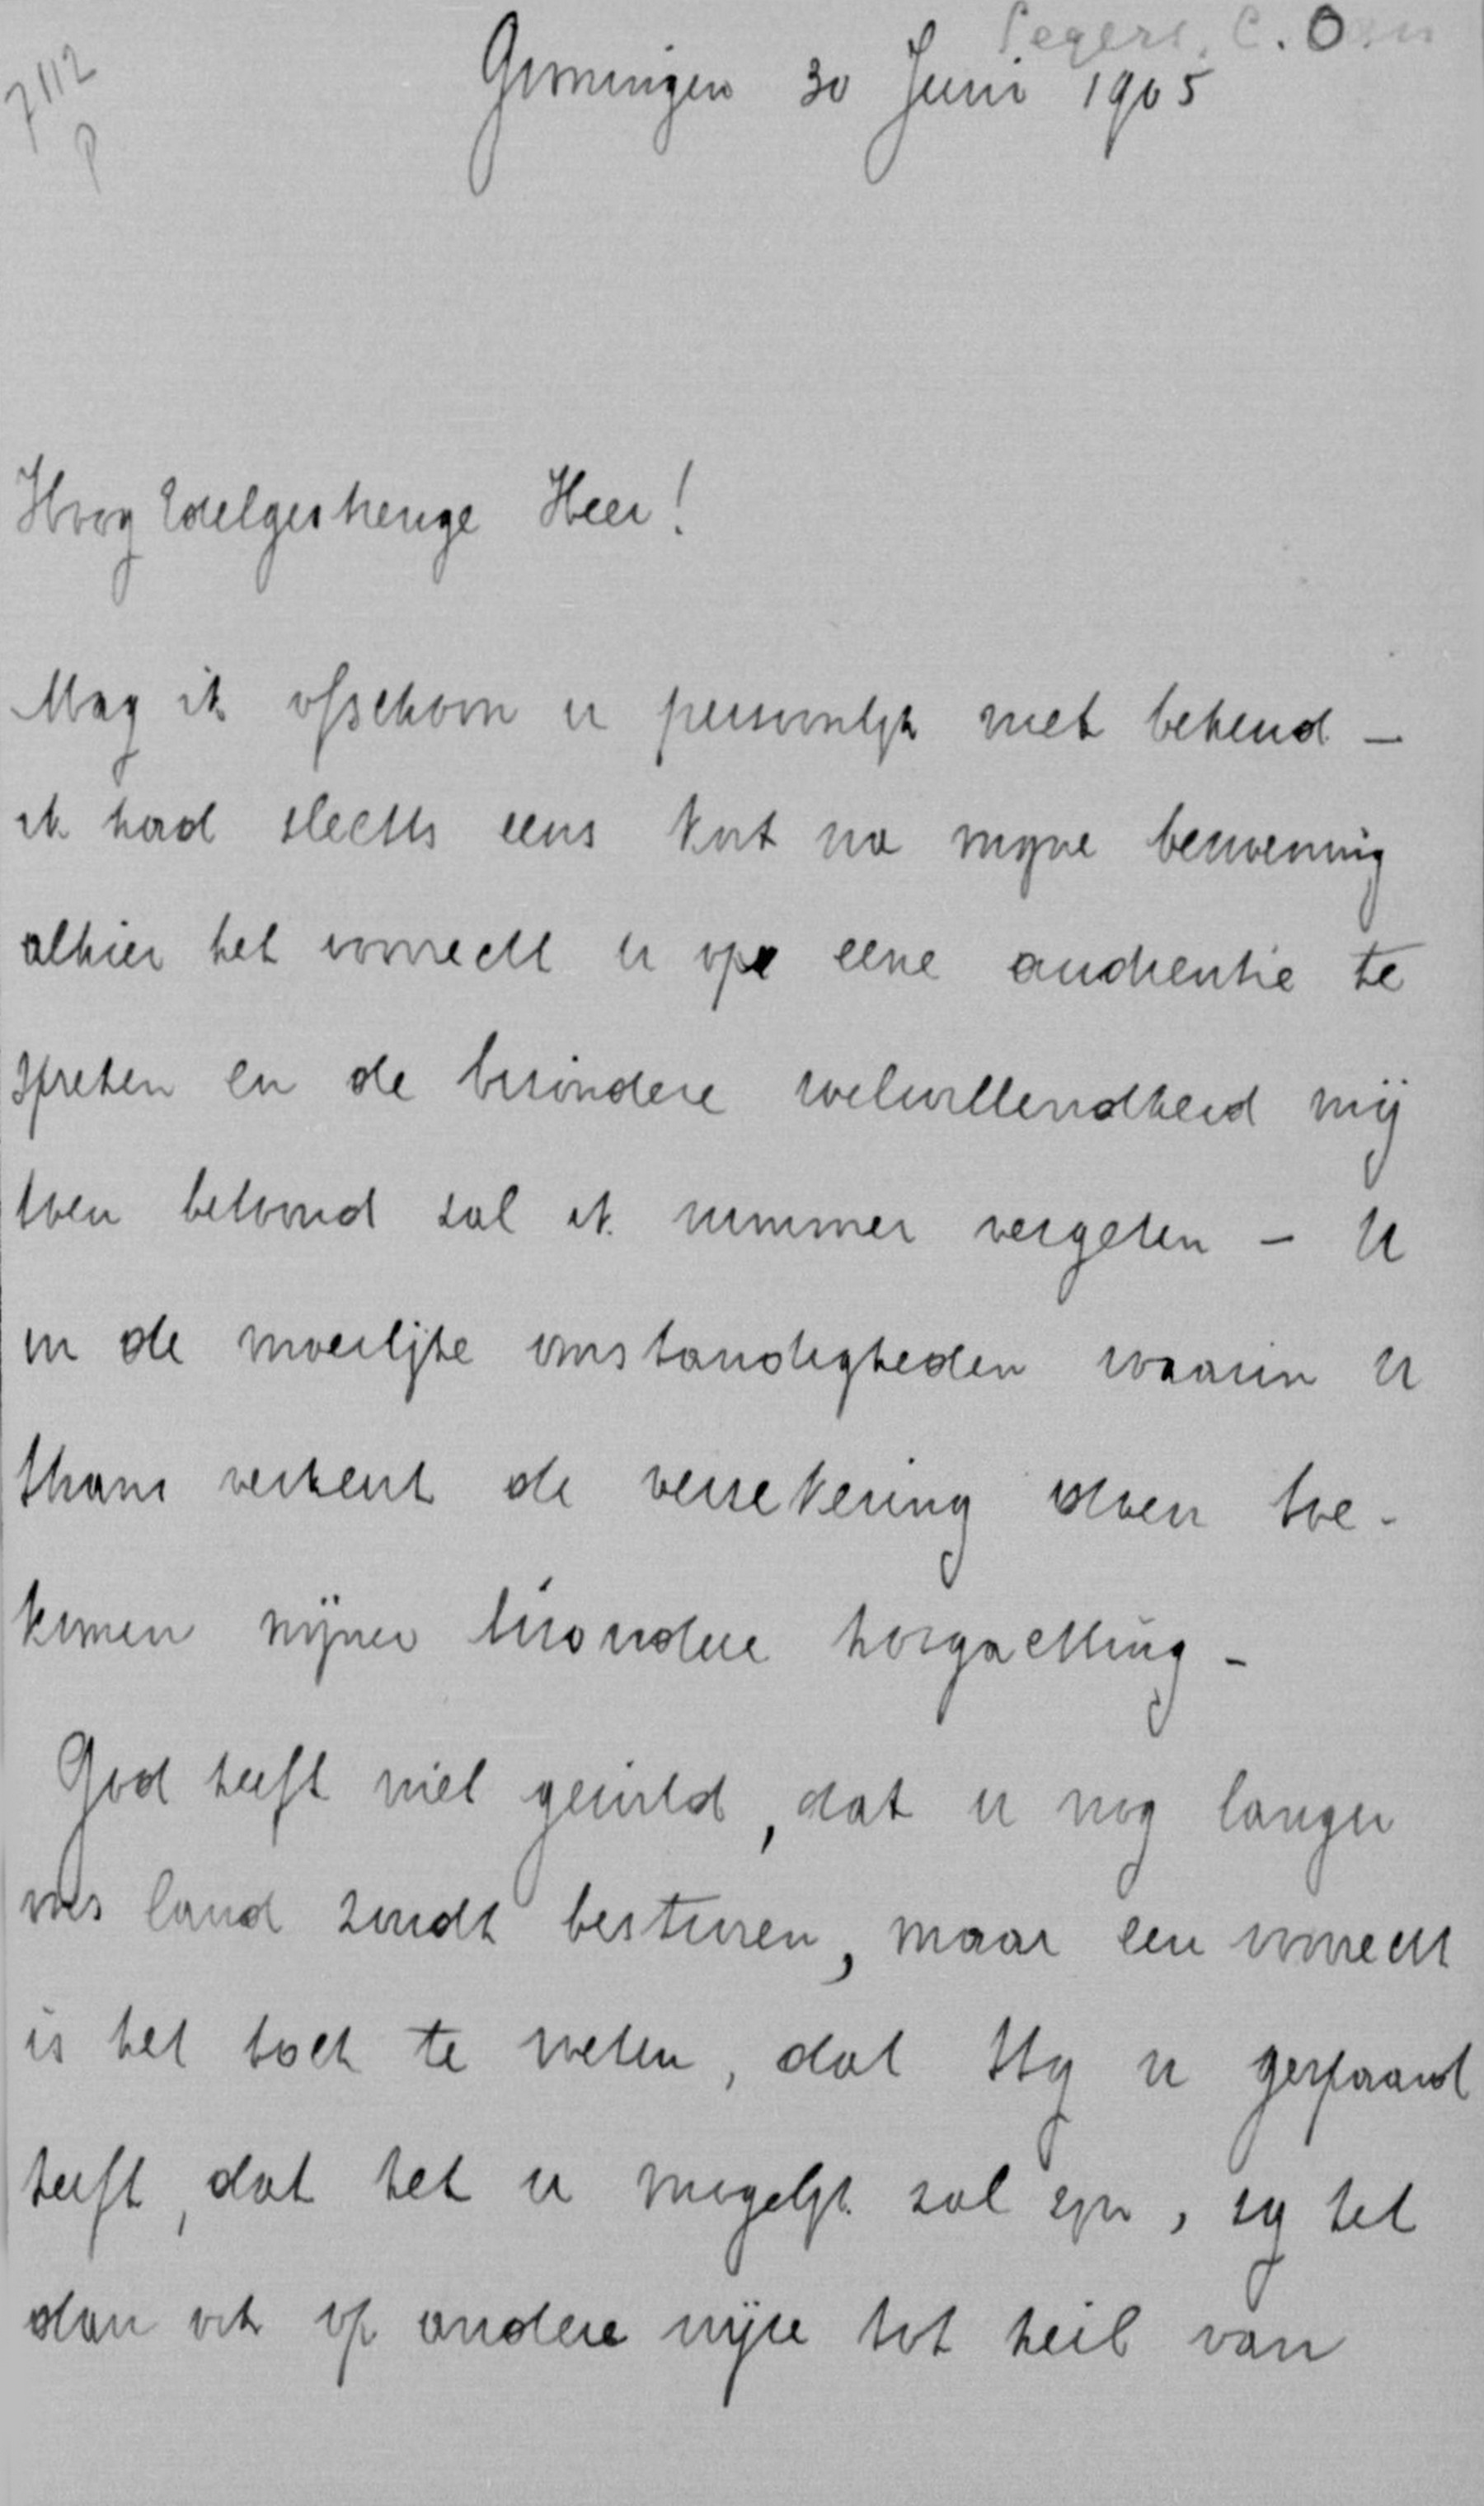 7112
P
Segers, C.
Groningen 30 Juni 1905
Hoog Edelgestrenge Heer!
Mag ik ofschoon u persoonlijk niet bekend –
ik had slechts eens kort na mijne benoeming
alhier het voorrecht u op eene audientie te
spreken en de bizondere welwillendheid mij
toen betoond zal ik nimmer vergeten – U
in de moeilijke omstandigheden waarin u
thans verkeert de verzekering doen toe-
komen mijner bizondere hoogachting –
God heeft niet gewild, dat u nog langer
ons land zoudt besturen, maar een voorrecht
is het toch te weten, dat Hij u gespaard
heeft, dat het u mogelijk zal zijn, zij het
dan ook op andere wijze tot heil van